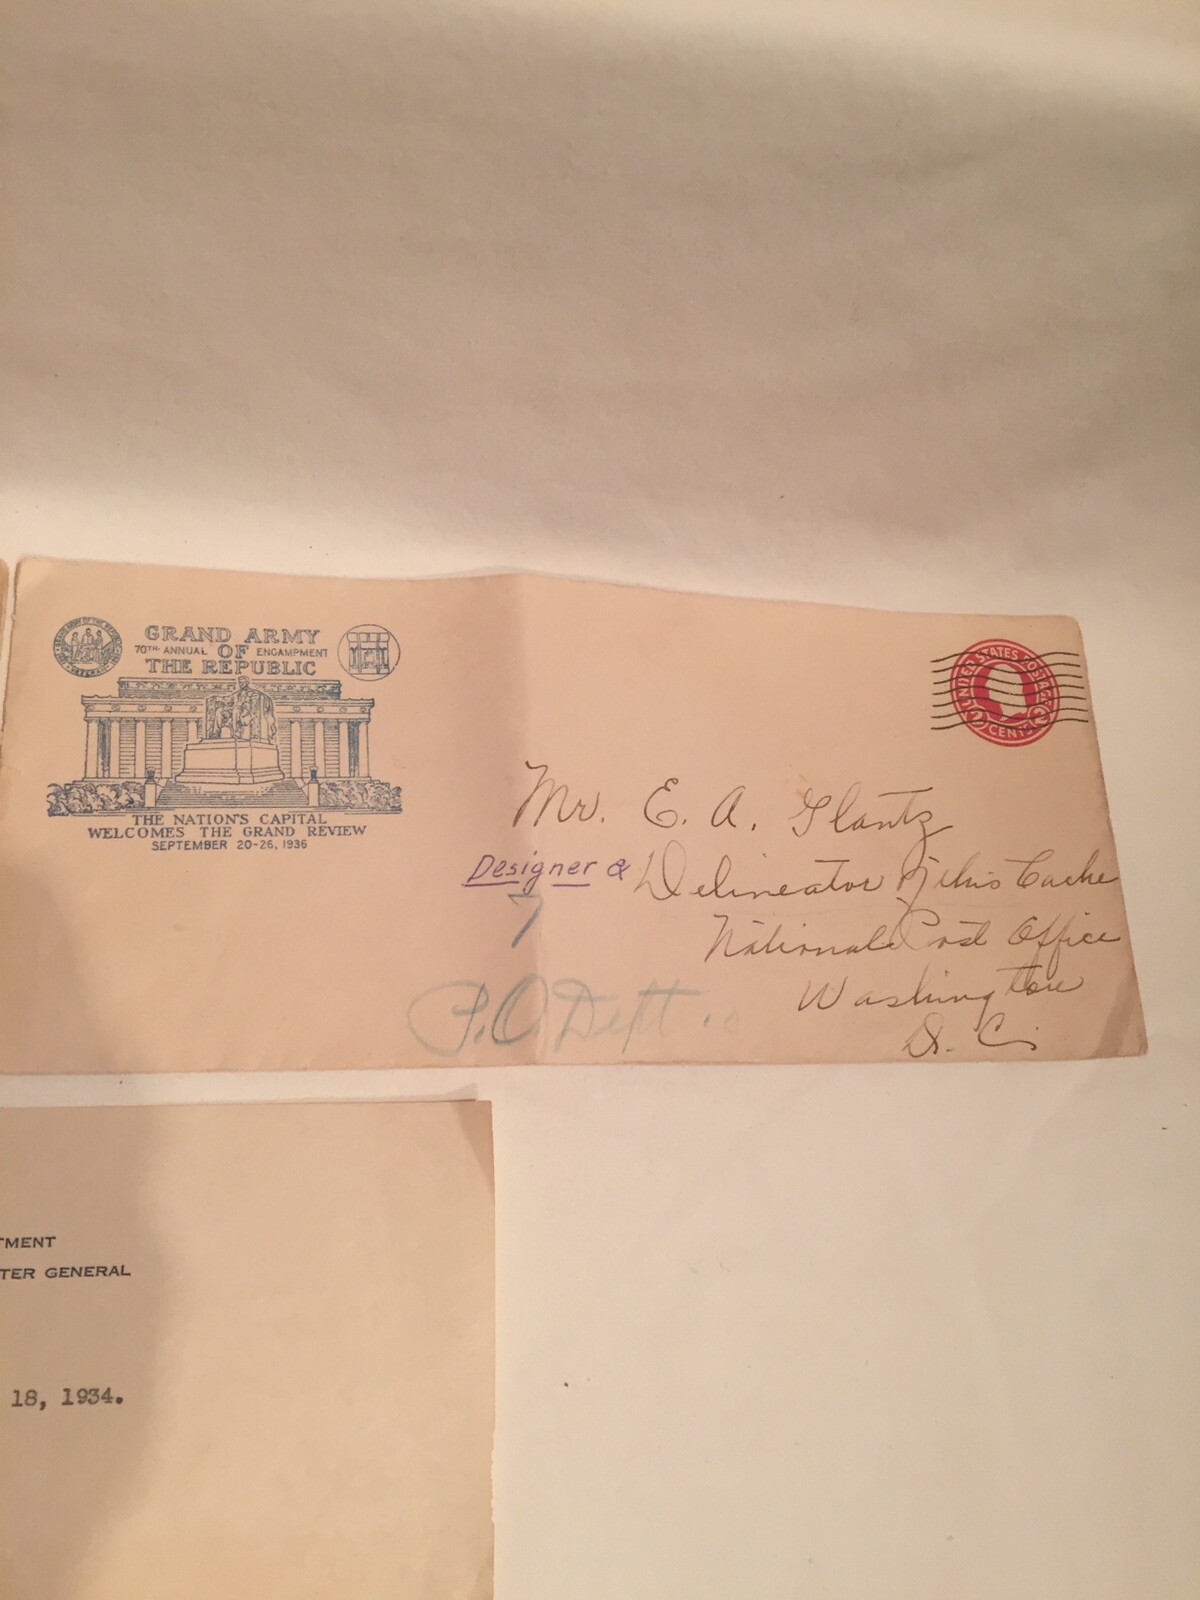 GRAND ARMY
70TH ANNUAL OF ENCAMPMENT
THE REPUBLIC
THE NATION'S CAPITAL
WELCOMES THE GRAND REVIEW
SEPTEMBER 20-26, 1936
UNITED STATES POSTAGE
2 CENTS 2
Mr. E. A. Glantz
Designer & Delineator of this Cache
7
National Post Office
P.O. Dept.
Washington
D. C.
TMENT
TER GENERAL
18, 1934.